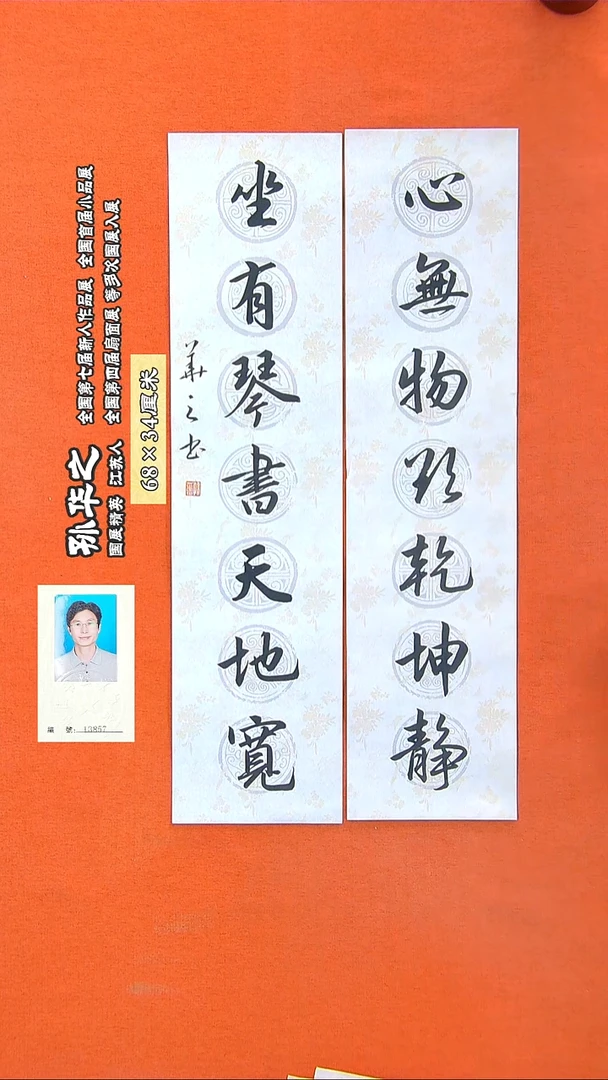 心無物欲乾坤静
坐有琴書天地寬
華之书
孙华之
全国第七届新人作品展 全国首届小品展
国展精英 江苏人
全国第四届扇面展 等多次国展入展
68×34厘米
編 號: 13857